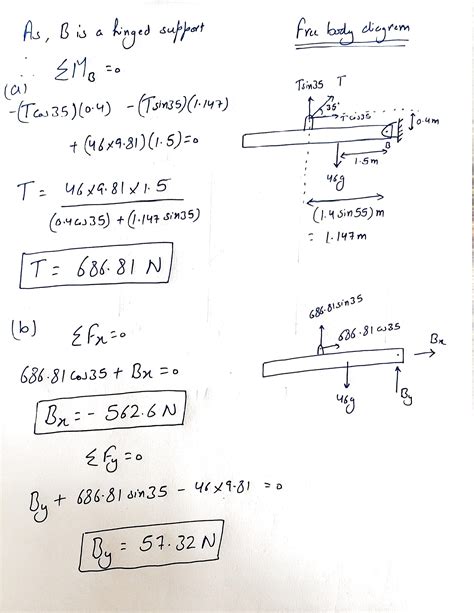 As, B is a hinged support
Free body diagram
∴ ΣM_B = 0
(a)
-(Tcos35)(0.4) -(Tsin35)(1.147)
+ (46×9.81)(1.5) = 0
T = 46×9.81×1.5 / (0.4cos35) + (1.147sin35)
T = 686.81 N
Tsin35
T
35°
Tcos35
0.4m
B
1.5m
46g
(1.4sin55)m
= 1.147m
(b) ΣFx = 0
686.81cos35 + Bx = 0
Bx = - 562.6N
ΣFy = 0
By + 686.81 sin35 - 46×9.81 = 0
By = 57.32 N
686.81sin35
686.81cos35
Bx
46g
By